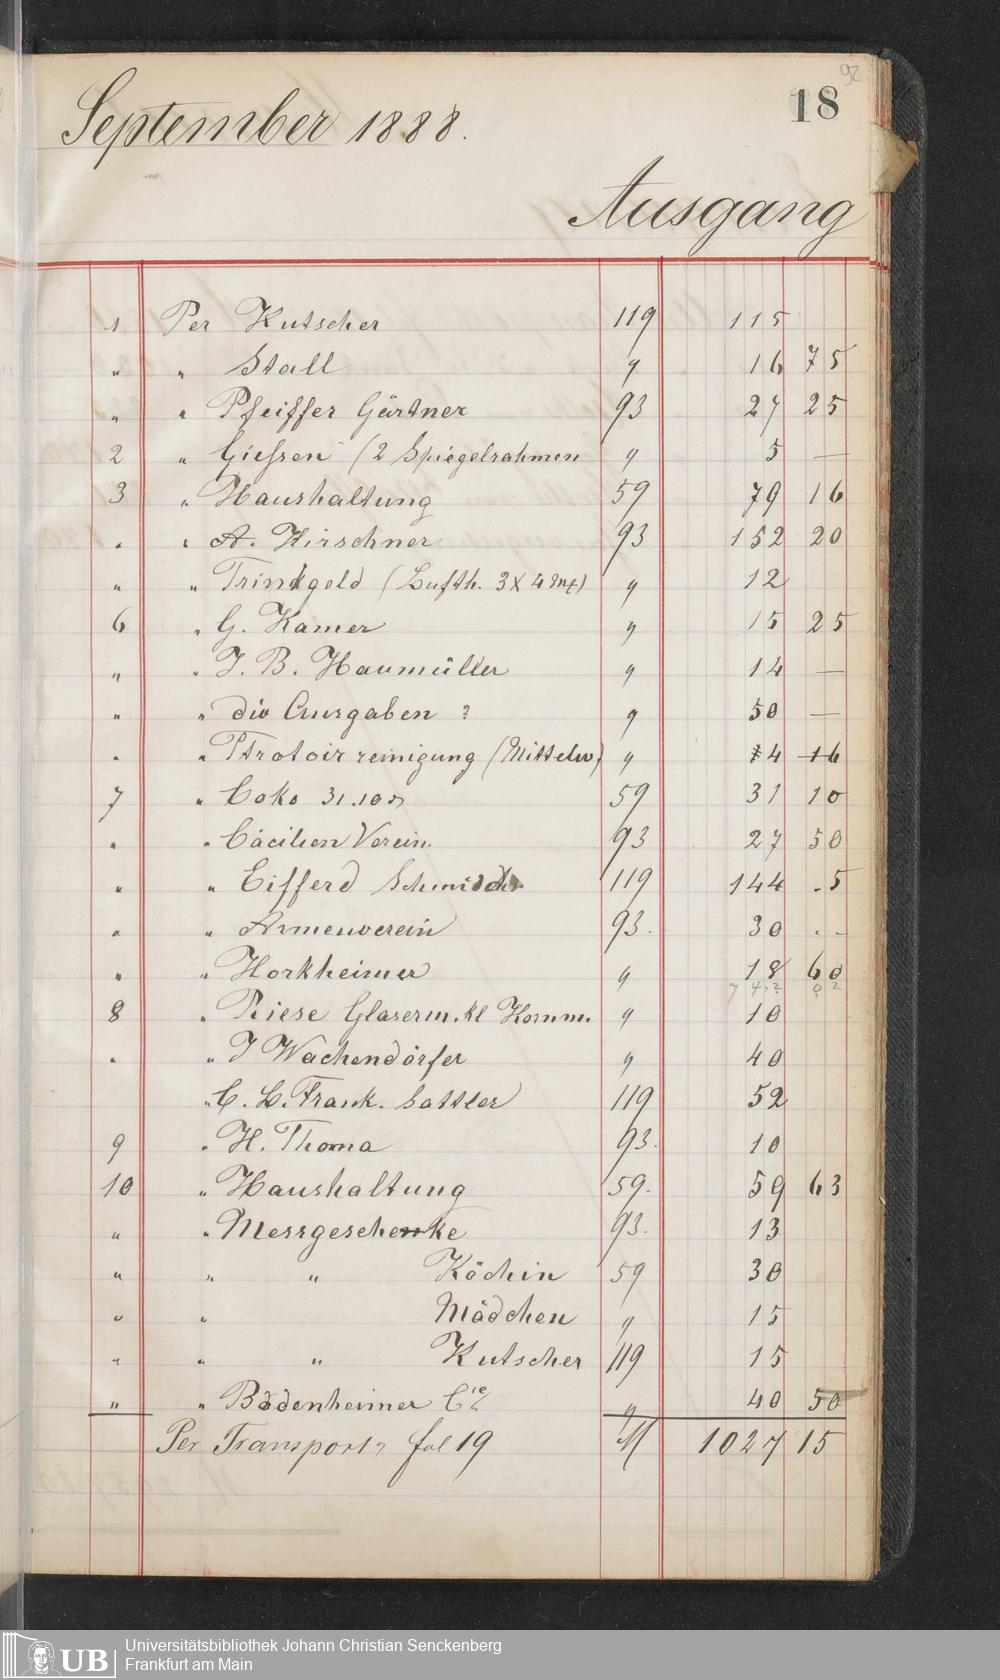 18
September 1888.
Ausgang
1 Per Kutscher 119 115
" " Stall " 16 75
" " Pfeiffer Gärtner 93 27 25
2 " Giessen (2 Spiegelrahmen " 5 —
3 " Haushaltung 59 79 16
" " A. Hirschner 93 152 20
" " Trinkgeld (Lufth. 3 X 4 Mk) " 12
6 " G. Kamer " 15 25
" " J. B. Haumüller " 14 —
" " div Ausgaben ? " 50 —
" " Trotoir reinigung (Mittelw) " 4 16
7 " Coks 59 31 10
" " Cäcilien Verein. 93 27 50
" " Eifferd 119 144 . 5
" " Armenverein 93. 30 . -
" " Horkheimer " 18 60
8 " Riese Glaserm. kl Komm. " 10
" " J Wachendörfer " 40
" C. L. Frank. Sattler 119 52
9 " H. Thoma 93. 10
10 " Haushaltung 59. 59 63
" " Messgeschenke 93. 13
" " " Köchin 59 30
" " Mädchen " 15
" " " Kutscher 119 15
" " Bodenheimer Cie " 40 50
Per Transport, fol 19 M 1027 15
UB Universitätsbibliothek Johann Christian Senckenberg
Frankfurt am Main